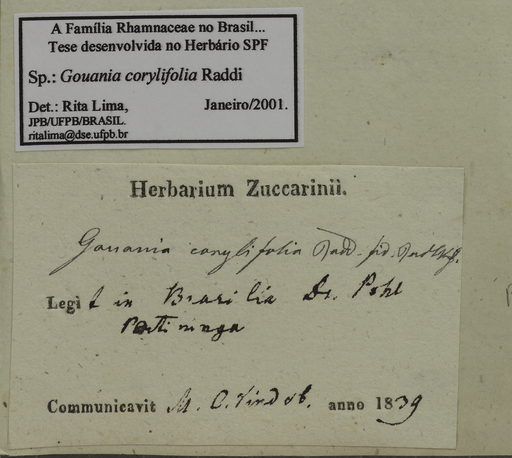 A Família Rhamnaceae no Brasil...
Tese desenvolvida no Herbário SPF
Sp.: Gouania corylifolia Raddi
Det.: Rita Lima, Janeiro/2001.
JPB/UFPB/BRASIL.
ritalima@dse.ufpb.br
Herbarium Zuccarinii.
Gouania corylifolia Radd. fid.
Legit in Brasilia Dr. Pohl
Communicavit M. C. Vindob. anno 1839